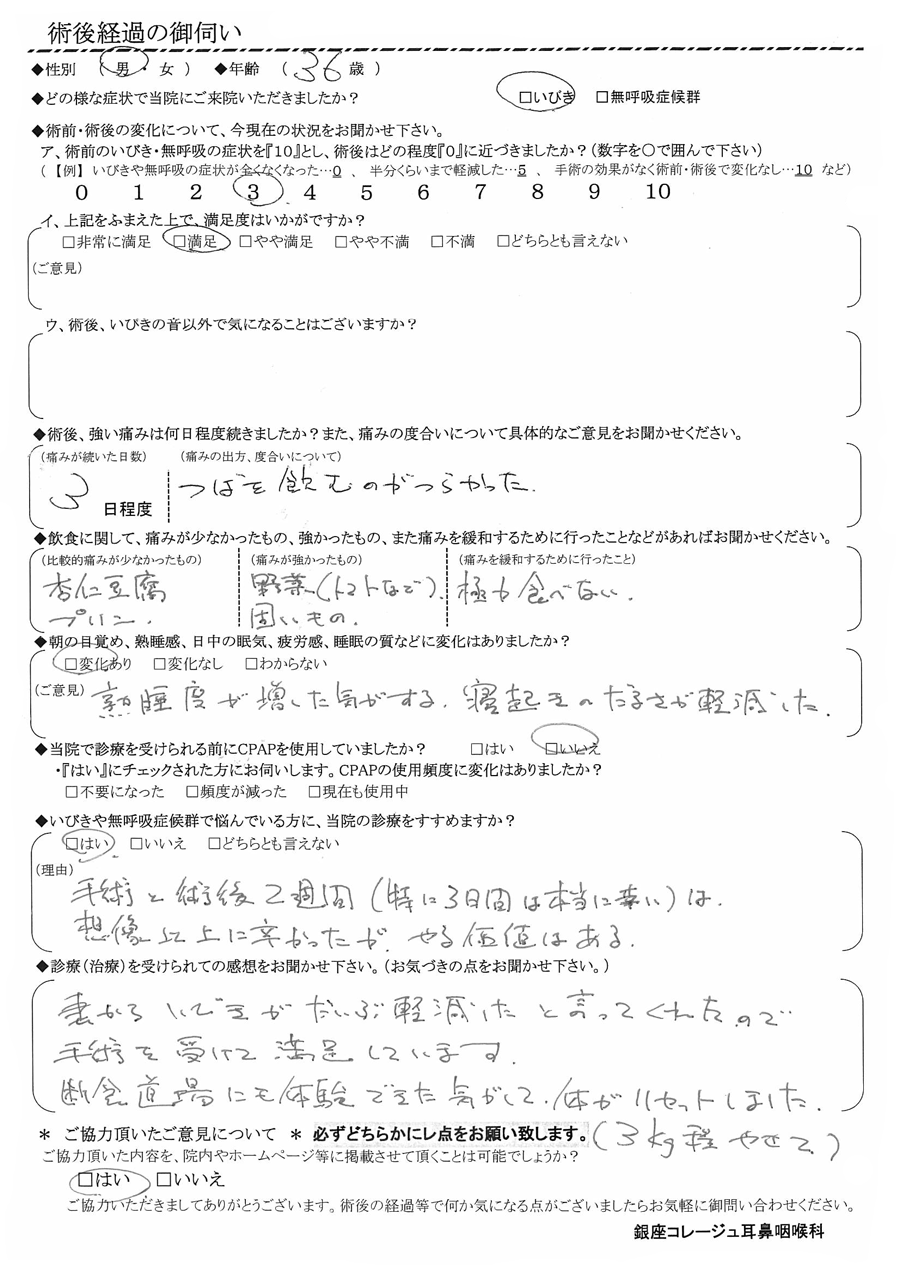 術後経過の御伺い
◆性別 （ 男 ・ 女 ） ◆年齢 （ 36 歳 ）
◆どの様な症状で当院にご来院いただきましたか？ □いびき □無呼吸症候群
◆術前・術後の変化について、今現在の状況をお聞かせ下さい。
ア、術前のいびき・無呼吸の症状を『10』とし、術後はどの程度『0』に近づきましたか？（数字を○で囲んで下さい）
（ 【例】 いびきや無呼吸の症状が全くなくなった…0 、 半分くらいまで軽減した…5 、 手術の効果がなく術前・術後で変化なし…10 など）
0 1 2 3 4 5 6 7 8 9 10
イ、上記をふまえた上で、満足度はいかがですか？
□非常に満足 □満足 □やや満足 □やや不満 □不満 □どちらとも言えない
（ご意見）
ウ、術後、いびきの音以外で気になることはございますか？
◆術後、強い痛みは何日程度続きましたか？また、痛みの度合いについて具体的なご意見をお聞かせください。
（痛みが続いた日数） （痛みの出方、度合いについて）
3 日程度 つばを飲むのがつらかった.
◆飲食に関して、痛みが少なかったもの、強かったもの、また痛みを緩和するために行ったことなどがあればお聞かせください。
（比較的痛みが少なかったもの） （痛みが強かったもの） （痛みを緩和するために行ったこと）
杏仁豆腐 野菜（トマトなど）. 極力食べない.
プリン. 固いもの.
◆朝の目覚め、熟睡感、日中の眠気、疲労感、睡眠の質などに変化はありましたか？
□変化あり □変化なし □わからない
（ご意見） 熟睡度が増した気がする. 寝起きのだるさが軽減した.
◆当院で診療を受けられる前にCPAPを使用していましたか？ □はい □いいえ
・『はい』にチェックされた方にお伺いします。CPAPの使用頻度に変化はありましたか？
□不要になった □頻度が減った □現在も使用中
◆いびきや無呼吸症候群で悩んでいる方に、当院の診療をすすめますか？
□はい □いいえ □どちらとも言えない
（理由）
手術と術後2週間（特に3日間は本当に辛い）は.
想像以上に辛かったが. やる価値はある.
◆診療（治療）を受けられての感想をお聞かせ下さい。（お気づきの点をお聞かせ下さい。）
妻からいびきがだいぶ軽減したと言ってくれたので
手術を受けて満足しています.
断食道場にも体験できた気がして. 体がリセットしました.
＊ ご協力頂いたご意見について ＊ 必ずどちらかにレ点をお願い致します。 （3kg程やせて.）
ご協力頂いた内容を、院内やホームページ等に掲載させて頂くことは可能でしょうか？
□はい □いいえ
ご協力いただきましてありがとうございます。術後の経過等で何か気になる点がございましたらお気軽に御問い合わせください。
銀座コレージュ耳鼻咽喉科